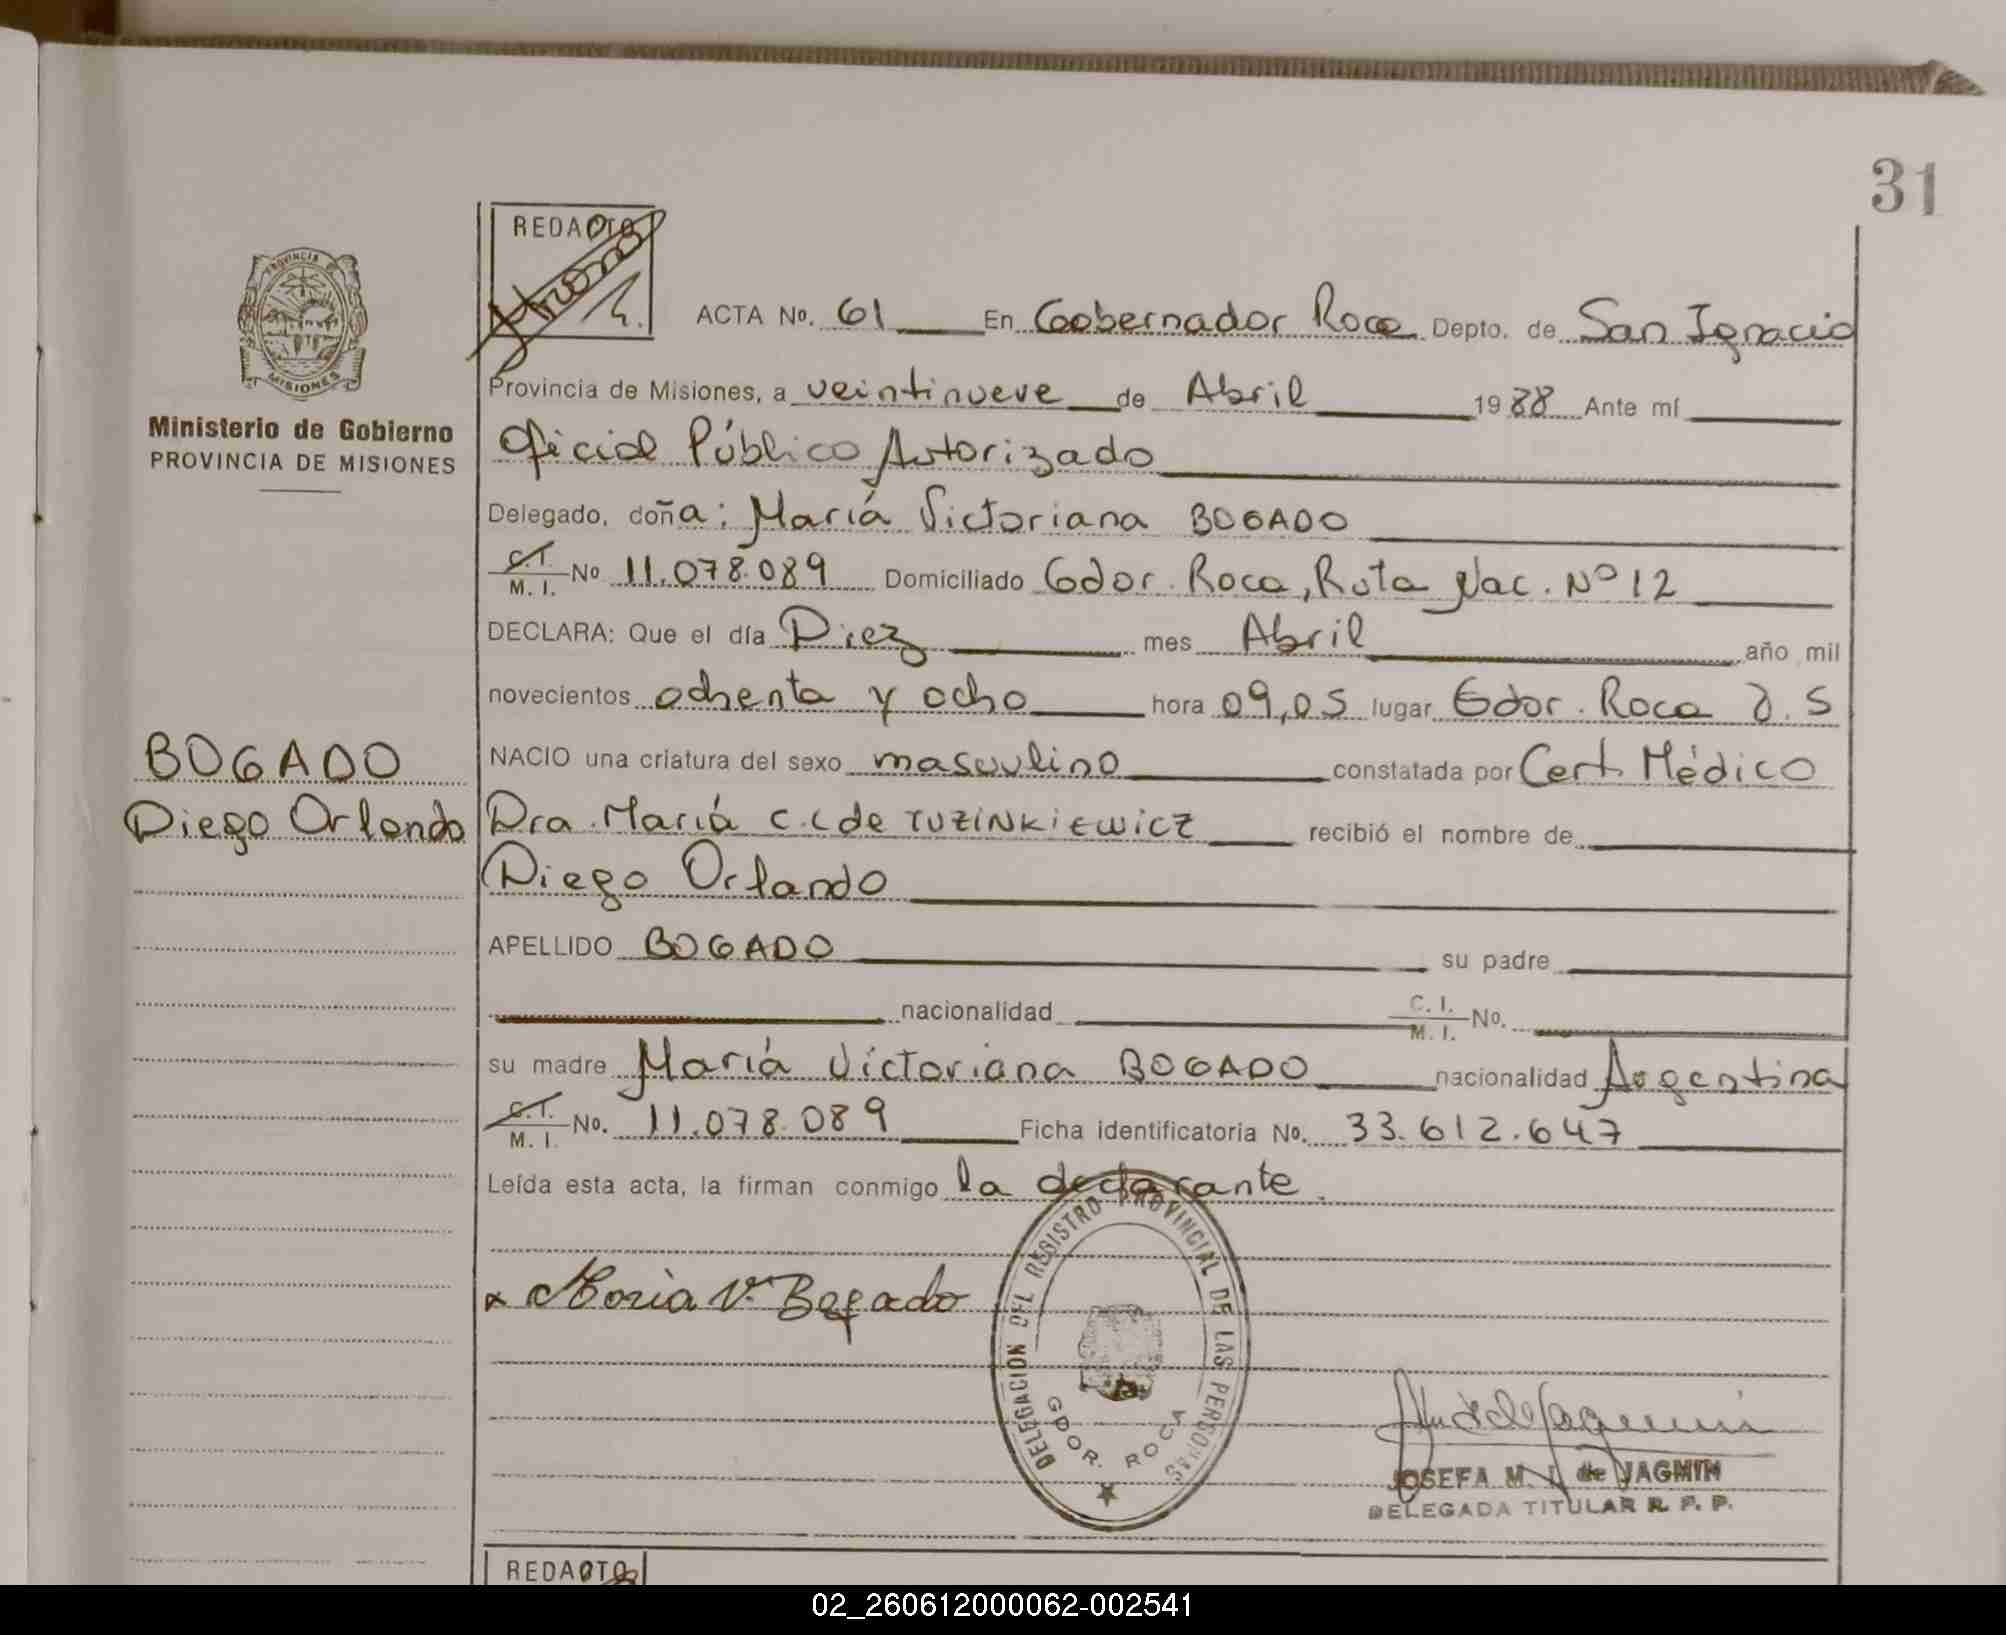 31
REDACTO
PROVINCIA
MISIONES
ACTA No. 61 En Gobernador Roca Depto. de San Ignacio
Provincia de Misiones, a veintinueve de Abril 1988 Ante mí
Ministerio de Gobierno
PROVINCIA DE MISIONES
Oficial Público Autorizado
Delegado, doña: María Victoriana BOGADO
C.I. M. I. No 11.078.089 Domiciliado Gdor. Roca, Ruta Nac. Nº 12
DECLARA: Que el día Diez mes Abril año mil
novecientos ochenta y ocho hora 09,05 lugar Gdor. Roca D. S
BOGADO
Diego Orlando
NACIO una criatura del sexo masculino constatada por Cert. Médico
Dra. María C. C de TUZINKIEWICZ recibió el nombre de
Diego Orlando
APELLIDO BOGADO su padre
nacionalidad C. I. M. I. No.
su madre María Victoriana BOGADO nacionalidad Argentina
C.I. M. I. No. 11.078.089 Ficha identificatoria No. 33.612.647
Leída esta acta, la firman conmigo la declarante.
María V. Bogado
DELEGACION DEL REGISTRO PROVINCIAL DE LAS PERSONAS
GDOR. ROCA
JOSEFA M. de YAGMIN
DELEGADA TITULAR R. P. P.
REDACTO
02_260612000062-002541